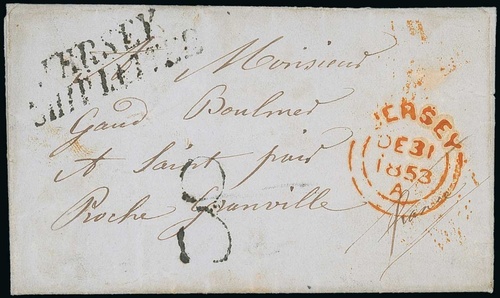 JERSEY
SHIP LETTER
Monsieur
Gaud Boulmer
A Saint pair
Roche Granville
8
JERSEY
DE 31
1853
A
france